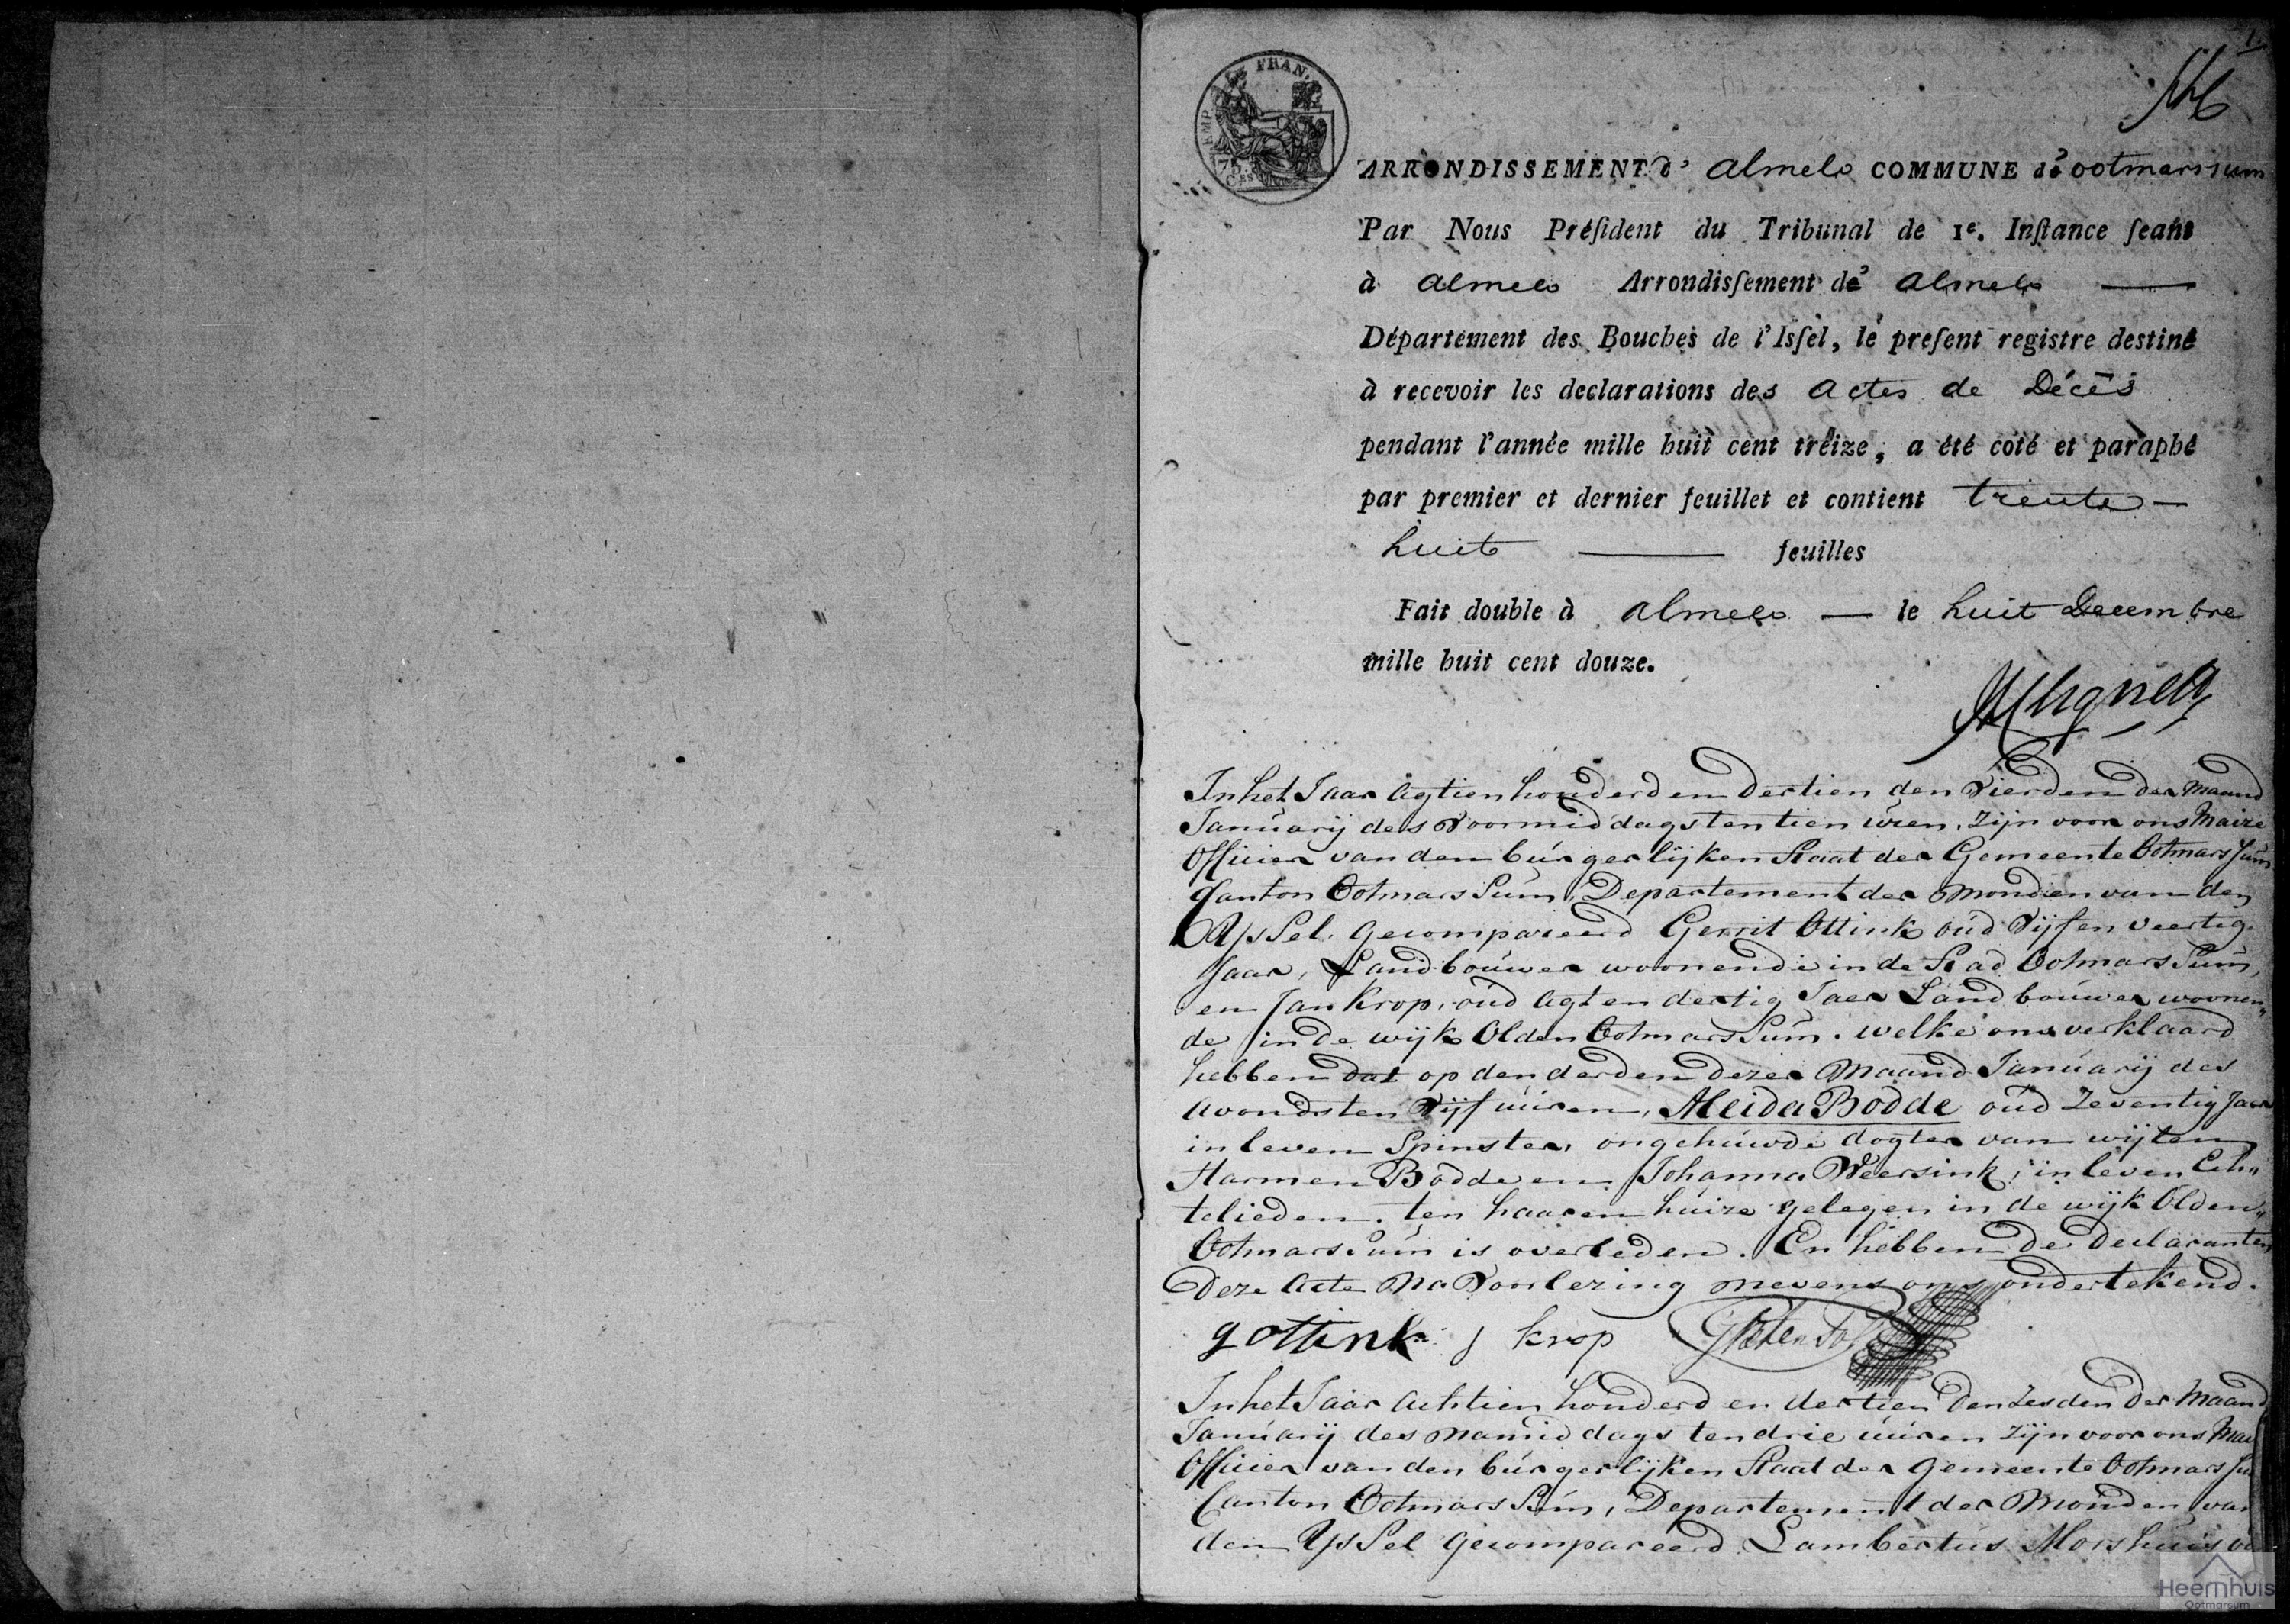 1
EMP. FRAN.
75
CES
ARRONDISSEMENT d' Almelo COMMUNE d'ootmarssum
Par Nous Préſident du Tribunal de 1e. Inſtance ſeant
à Almelo Arrondisſement d' Almelo
Département des Bouches de l'Isſel, le preſent registre destiné
à recevoir les declarations des Actes de Décès
pendant l'année mille huit cent treize, a été coté et paraphé
par premier et dernier feuillet et contient trente-
huit feuilles
Fait double à Almelo le huit Decembre
mille huit cent douze.
In het Jaar Agtien honderd en dertien den Vierden der Maand
Januarij des Voormiddags ten tien uren, zijn voor ons Maire
Officier van den burgerlijken Staat der Gemeente Ootmarssum
Canton Ootmarssum, Departement der Monden van den
Yssel. Gecompareerd Gerrit Ottink oud Vijf en Veertig
Jaar, Landbouwer woonende in de Stad Ootmarssum,
en Jan Krop, oud Agt en dertig Jaer Landbouwer woonen„
de in de wijk Olden Ootmarssum. welke ons verklaard
hebben dat op den derden dezer Maand Januarij des
Avonds ten Vijf uuren, Aleida Bodde oud Zeventig Jaar
in leven Spinster, ongehuwde dogter van wijlen
Harmen Bodde en Johanna Weersink, in leven Ech„
telieden. ten haaren huize gelegen in de wijk Olden„
Ootmarssum is overleden. En hebben de declaranten
Deze Acte Na Voorlezing nevens ons ondertekend.
g ottink j krop
In het Jaar Achtien honderd en dertien Den Zesden Der Maand
Januarij des Namiddags ten drie uuren zijn voor ons Mai
Officier van den burgerlijken Staat der Gemeente Ootmarssu
Canton Ootmarssum, Departement der Monden van
den Yssel Gecompareerd Lambertus Morshuis
Heemhuis
Ootmarsum